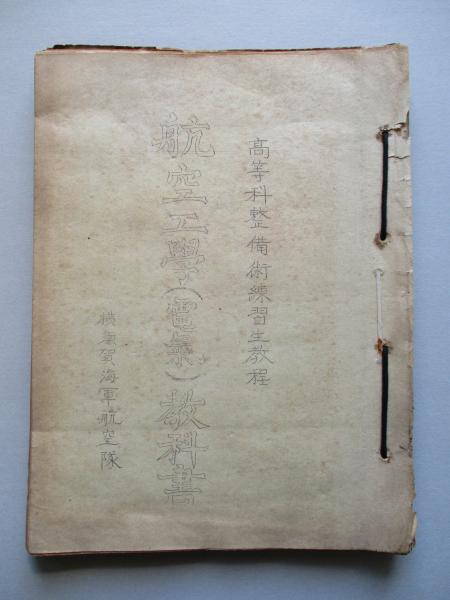 高等科整備術練習生教程
航空工學(電氣)教科書
横須賀海軍航空隊